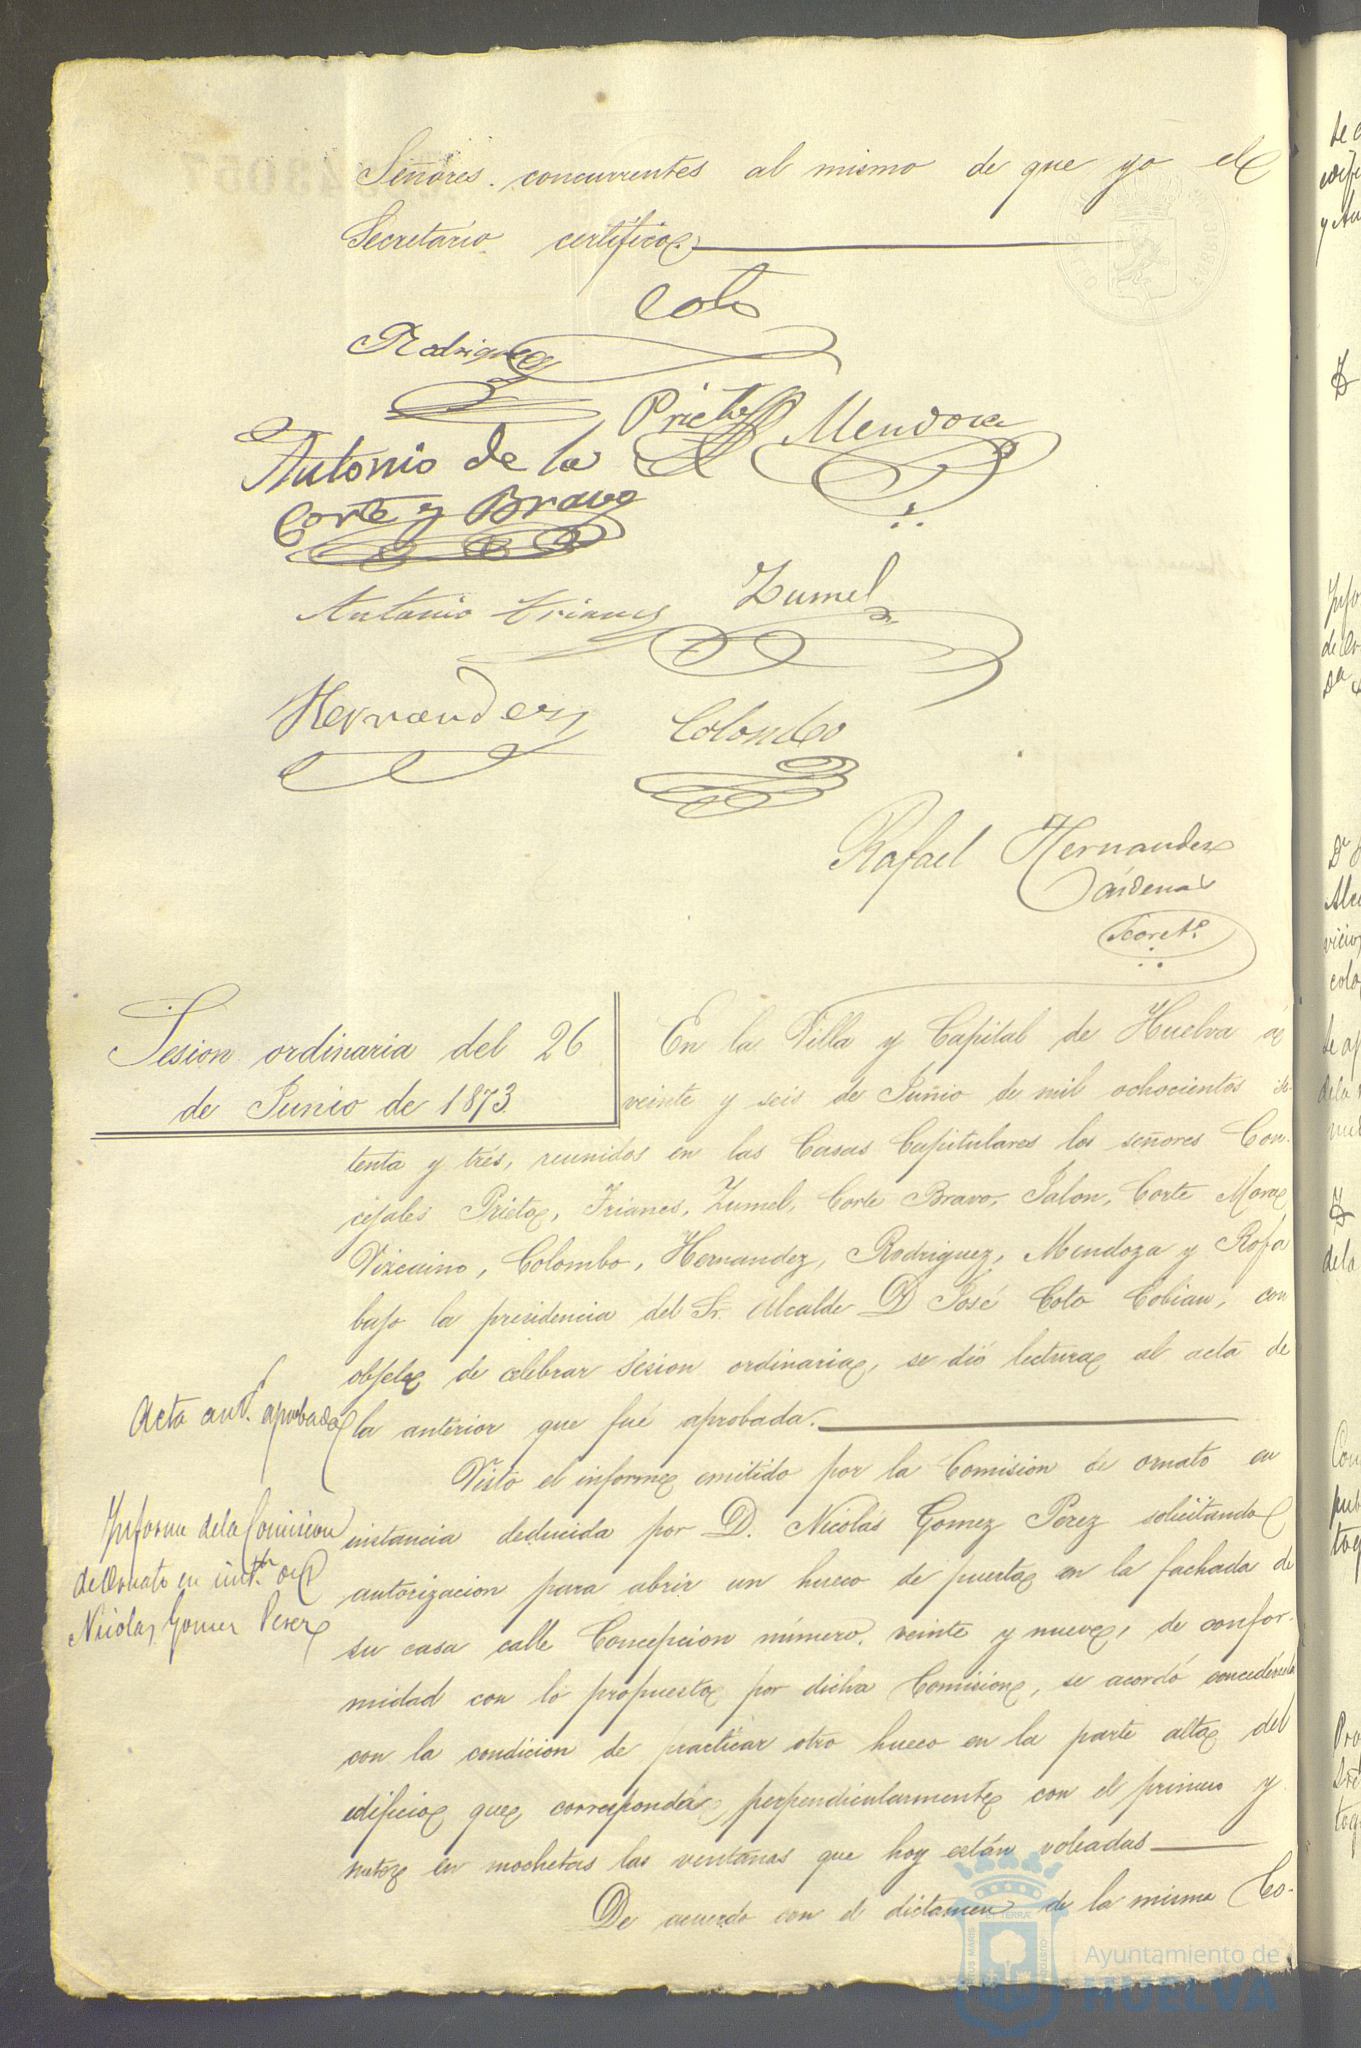 Señores concurrentes al mismo de que yo el
Secretario certifico.
Coto
Rodriguez
Prieto
Mendoza
Antonio de la
Corte y Bravo
Antonio Trianes
Zumel
Hernandez
Colombo
Rafael Hernandez
Cárdenas
Secretº
Sesion ordinaria del 26
de Junio de 1873.
En la Villa y Capital de Huelva á
veinte y seis de Junio de mil ochocientos se-
tenta y tres, reunidos en las Casas Capitulares los señores Con-
cejales Prieto, Trianes, Zumel, Corte Bravo, Jalon, Corte Mora,
Vizcaino, Colombo, Hernandez, Rodriguez, Mendoza y Rofa
bajo la presidencia del Sr. Alcalde D José Coto Cobian, con
objeto de celebrar Sesion ordinaria, se dió lectura al acta de
Acta antr. aprobada
la anterior que fué aprobada.
Visto el informe emitido por la Comision de ornato en
Informe de la Comision
de Ornato en instª de D
Nicolas Gomez Perez
instancia deducida por D. Nicolás Gomez Perez solicitando
autorizacion para abrir un hueco de puerta en la fachada de
su casa calle Concepcion número veinte y nueve, de confor-
midad con lo propuesto por dicha Comision, se acordó concedérsela
con la condicion de practicar otro hueco en la parte alta del
edificio que corresponda perpendicularmente con el primero y
meter en mochetas las ventanas que hoy están voleadas
De acuerdo con el dictamen de la misma Co-
Ayuntamiento de
HUELVA